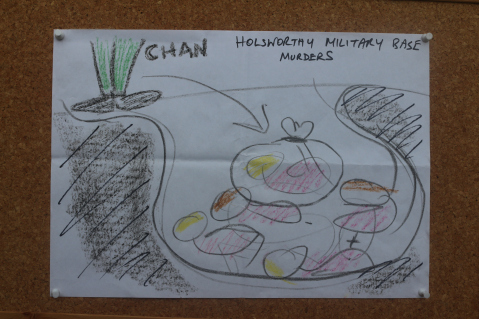 CHAN
HOLSWORTHY MILITARY BASE
MURDERS